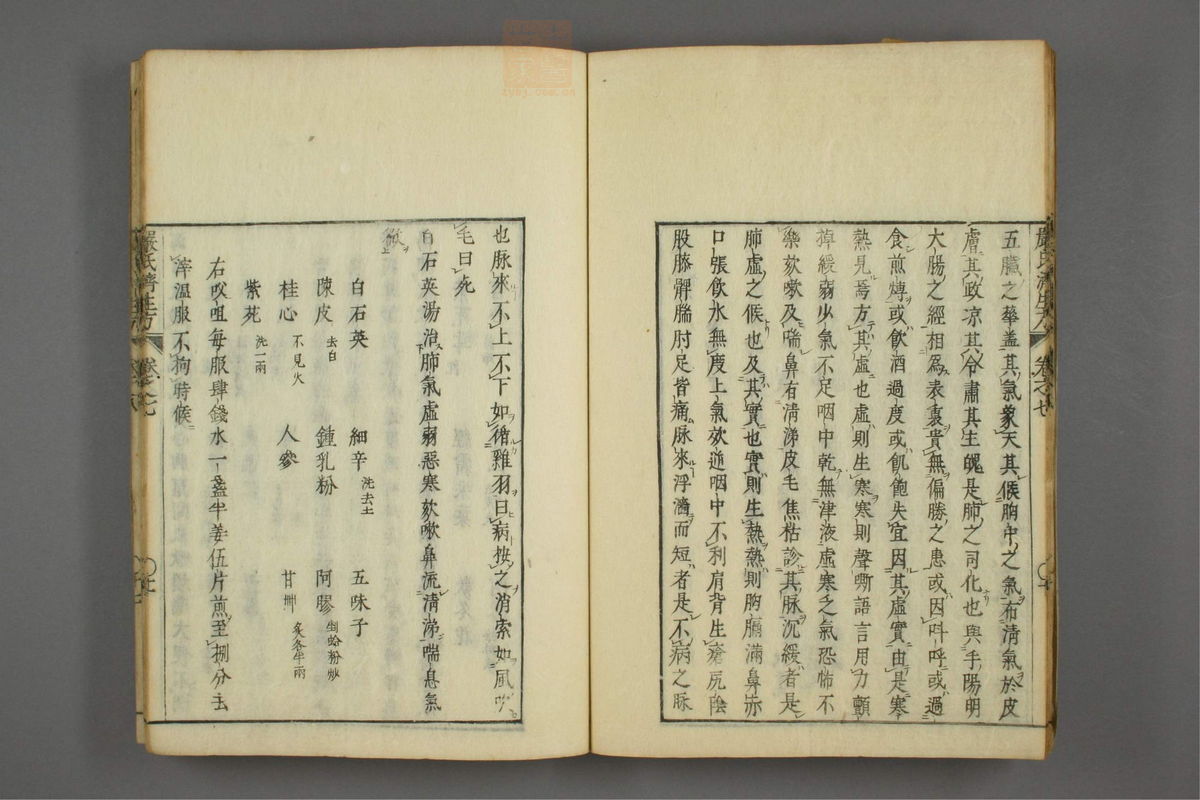 五臟之華盖其氣象天其候胸中之氣布清氣於皮
膚其政凉其令肅其生魄是肺之司化也與手陽明
大腸之經相爲表裏貴無偏勝之患或因呌呼或過
食煎煿或飲酒過度或飢飽失宜因其虛實由是寒
熱見焉方其虛也虛則生寒寒則聲嘶語言用力顫
掉緩弱少氣不足咽中乾無津液虛寒之氣恐怖不
樂欬嗽及喘鼻有清涕皮毛焦枯診其脉沉緩者是
肺虛之候也及其實也實則生熱熱則胸膈滿鼻赤
口張飲水無度上氣欬逆咽中不利肩背生瘡尻陰
股膝髀腨肘足皆痛脉來浮濇而短者是不病之脉
也脉來不上不下如循雞羽曰病按之消索如風吹
毛曰死
白石英湯治肺氣虛弱惡寒欬嗽鼻流清涕喘息氣
白石英 細辛洗去土 五味子
陳皮去白 鍾乳粉 阿膠剉蛤粉炒
桂心不見火 人參 甘艸炙各半兩
紫苑洗一兩
右㕮咀每服肆錢水一盞半姜伍片煎至捌分去
滓温服不拘時候
嚴氏濟生方 卷之七